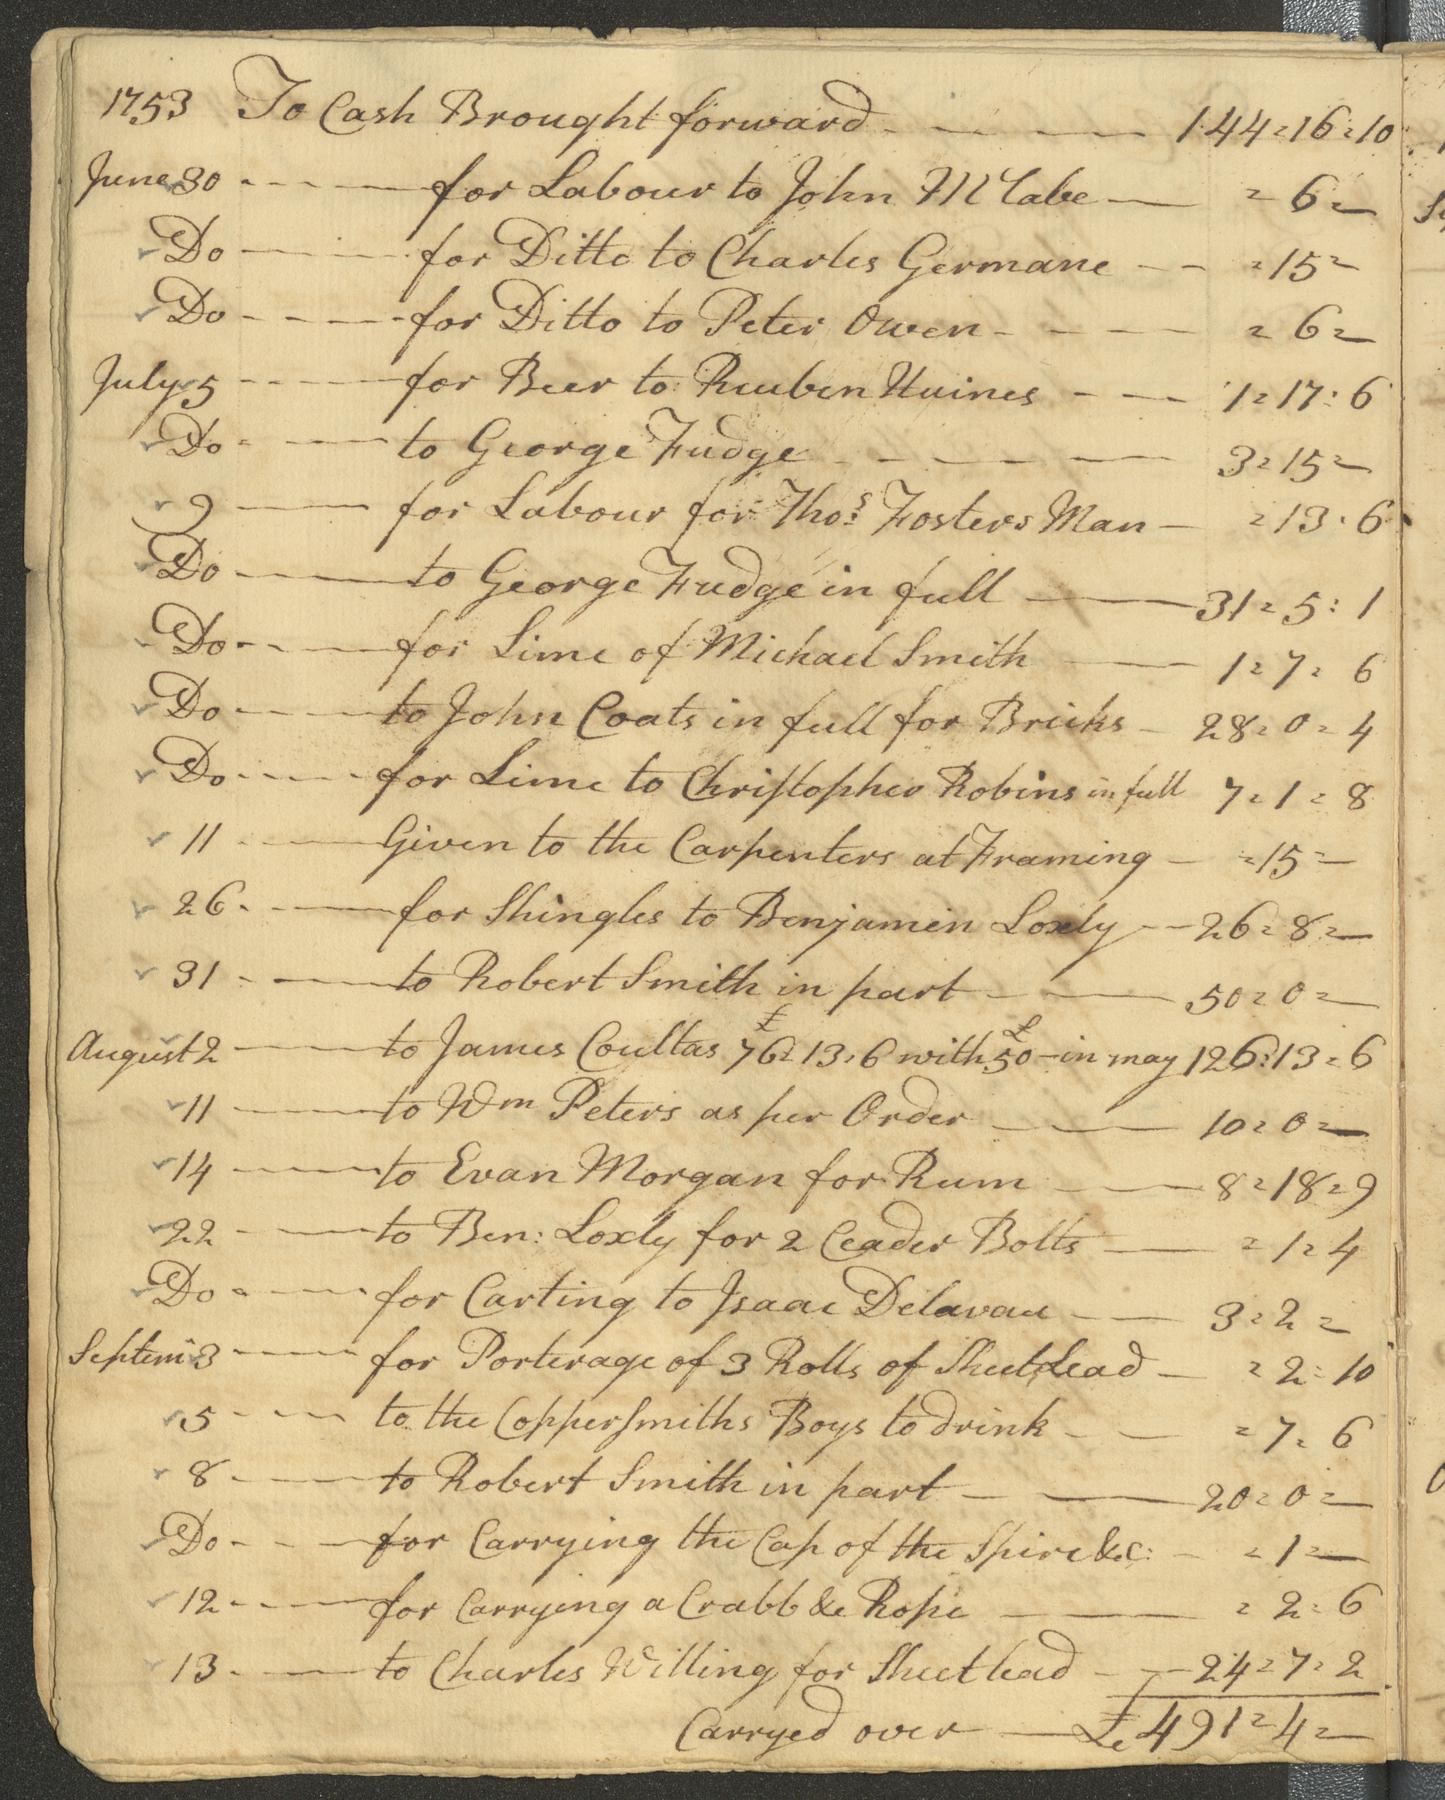 1753 To Cash Brought forward - - - 144=16=10
June 30 - - - for Labour to John McCabe = 6 =
Do for Ditto to Charles Germane - - = 15 =
Do - - - for Ditto to Peter Owen - - - = 6 =
July 5 - - - for Beer to Reuben Haines - - 1=17:6
Do - - to George Fudge - - - 3=15=
9 for Labour for Thos: Fosters Man - = 13:6
Do to George Fudge in full 31=5:1
Do - - for Lime of Michael Smith 1=7=6
Do - - to John Coats in full for Bricks - 28=0=4
Do - - - for Lime to Christopher Robins in full 7=1=8
11 - Given to the Carpenters at Framing - = 15 =
26 - for Shingles to Benjamin Loxly - - 26=8=
31 - to Robert Smith in part - - 50=0=
August 2 to James Coultas £76=13:6 with £50 - in may 126:13=6
11 to Wm Peters as per Order 10=0=
14 to Evan Morgan for Rum 8=18=9
22 to Ben: Loxly for 2 Ceader Bolts = 1=4
Do - - for Carting to Isaac Delavau - - 3=2=
Septem 3 - - - for Porterage of 3 Rolls of Sheet Lead - = 2=10
5 - - - to the Coppersmiths Boys to drink - - = 7=6
8 - to Robert Smith in part - 20=0=
Do - - for Carrying the Cap of the Spire &c: - = 1 =
12 - - for Carrying a Crabb & Rope = 2:6
13 - to Charles Willing for Sheet lead - - 24=7=2
Carryed over - £491=4=